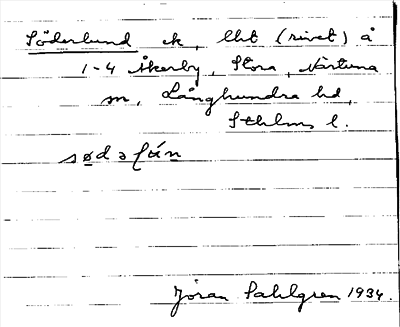 Söderlund ek, lht (rivet) å
1-4 Åkerby, Stora, Närtuna
sn, Långhundra hd,
Sthlms l.
sødəlún
Jöran Sahlgren 1934.